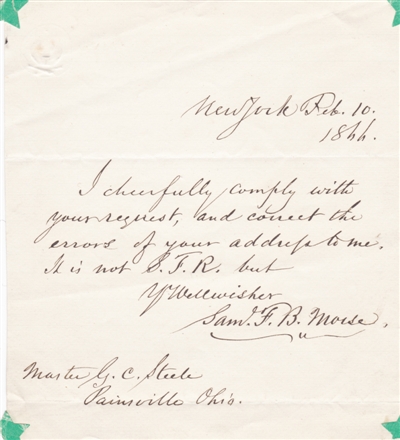 New York Feb. 10.
1866.
I cheerfully comply with
your request, and correct the
errors of your address to me.
It is not S. F. R. but
Yr Wellwisher
Saml. F. B. Morse.
Master G. C. Steele
Painsville Ohio.